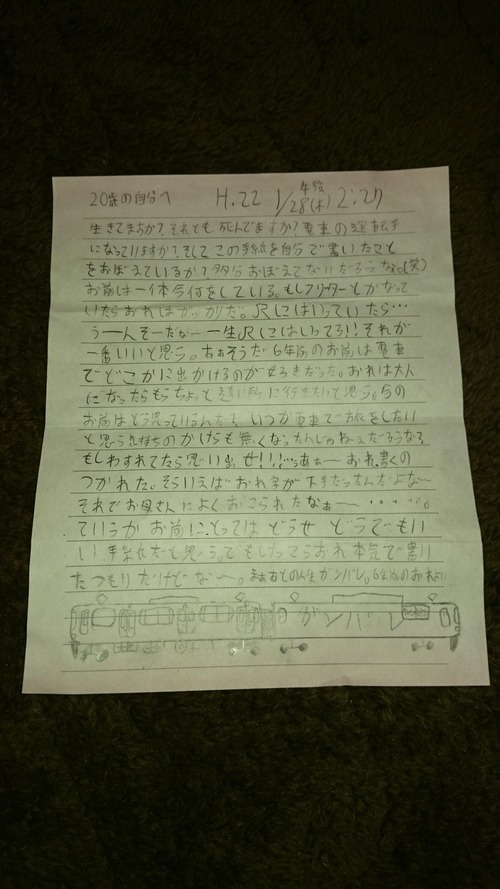 20歳の自分へ H.22 1/28(木) 午後2:27
生きてますか?それとも死んでますか?電車の運転手
になっていますか?そしてこの手紙を自分で書いたこと
をおぼえているか?多分おぼえてないだろうな。(笑)
お前は一体今何をしている。もしフリーターとかなって
いたらおれはがっかりだ。JRにはいっていたら…
う一人そーだな〜一生JRにはいってろ!!それが
一番いいと思う。あぁそうだ6年前のお前は電車
でどこかに出かけるのがせろきだった。おれは大人
になったらもうちょっと遠い所に行きたいと思う。今の
お前はどう思っているんだ?いつか電車で旅をしたい
と思う気持ちのかけらも無くなったんじゃねぇだろうな?
もしわすれてたら思い出せ!!!うあぁ〜おれ書くの
つかれた。そういえばおれ字が下手だったんだよな〜
それでお母さんによくおこられたなぁ〜……。
ていうかお前にとってはどうせどうでもい
い手紙だと思う。でもしたってらおれ本気で書い
たつもりだけどな〜。まぁあとの人生ガンバレ。6年前のおれより
ガンバレ